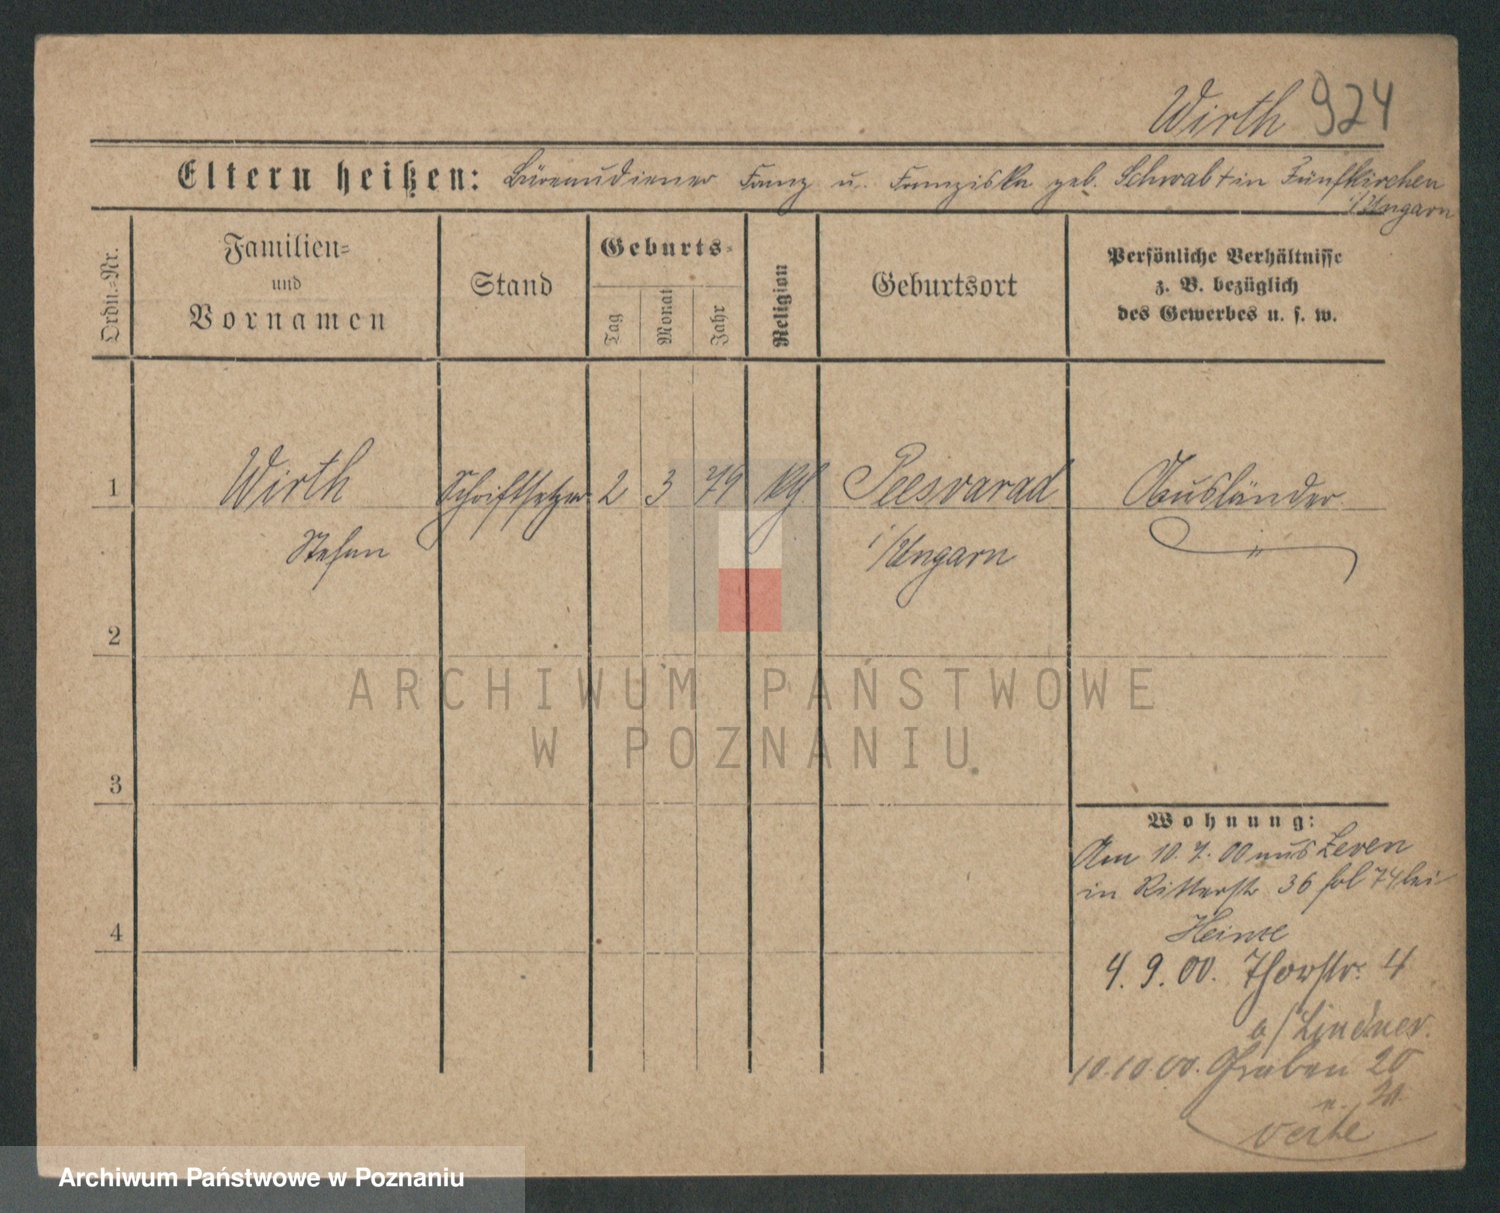 Wirth 924
Eltern heißen: Büreaudiener Franz u. Franziska geb. Schwab + in Fünfkirchen
i/Ungarn
Ordn.-Nr.
Familien-
und
Vornamen
Stand
Geburts-
Tag
Monat
Jahr
Religion
Geburtsort
Persönliche Verhältnisse
z. B. bezüglich
des Gewerbes u. s. w.
1 Wirth Schriftsetzer 2 3 79 kth Pecsvarad Ausländer
Stefan i/Ungarn
2
ARCHIWUM PAŃSTWOWE
W POZNANIU
3
Wohnung:
Am 10.7.00 aus
in Ritterstr 36 bei
4
4. 9. 00. Thorstr. 4
b/Lindner.
10.10.00. Graben 20
verte
Archiwum Państwowe w Poznaniu